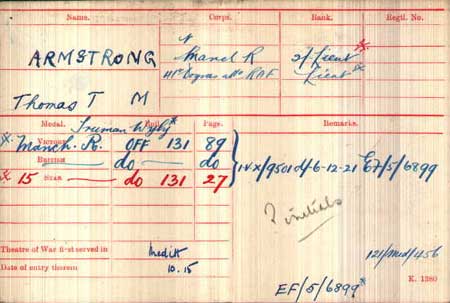 Name. Corps. Rank. Regtl. No.
ARMSTRONG
Manch R 2/Lieut
41st Dogras att RAF Lieut
Thomas T M
Truman Wyly
Medal. Roll. Page. Remarks.
Victory Manch. R. OFF 131 89
British do do IVX/9501 d/-6-12-21 EF/5/6899
* 15 Star do 131 27
? initials
Theatre of War first served in Medit
Date of entry therein 10.15
121/Med/456
EF/5/6899
K. 1380